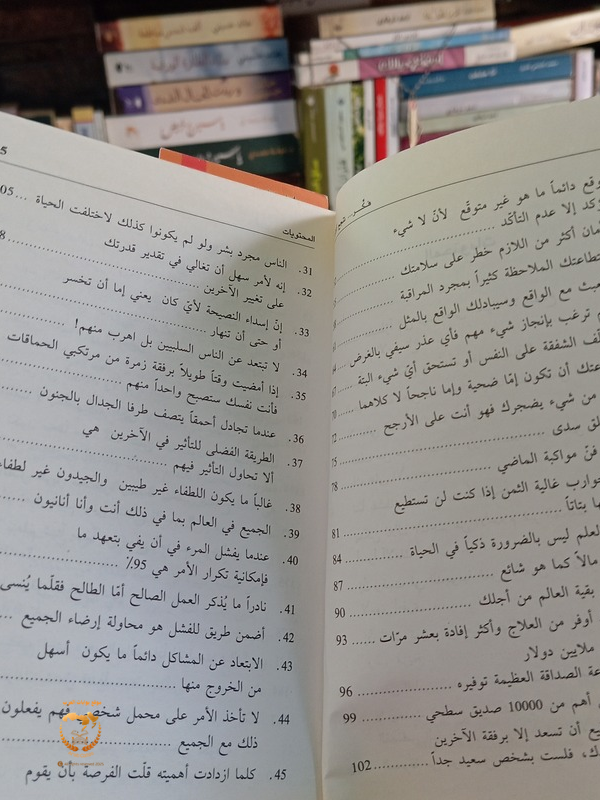 فكّر...
وقع دائماً ما هو غير متوقّع لأنّ لا شيء
كد إلا عدم التأكّد
مان أكثر من اللازم خطر على سلامتك
تطاعتك الملاحظة كثيراً بمجرد المراقبة
بث مع الواقع وسيبادلك الواقع بالمثل
ترغب بإنجاز شيء مهم فأي عذر سيفي بالغرض
ف الشفقة على النفس أو تستحق أيّ شيء البتة
عتك أن تكون إمّا ضحية وإما ناجحاً لا كلاهما
من شيء يضجرك فهو أنت على الأرجح
لق سدى
فنّ مواكبة الماضي ... 78
وارب غالية الثمن إذا كنت لن تستطيع
ها بتاتاً ... 81
لعلم ليس بالضرورة ذكياً في الحياة ... 84
مالاً كما هو شائع ... 87
بقية العالم من أجلك ... 90
أوفر من العلاج وأكثر إفادة بعشر مرّات ... 93
ملايين دولار
عة الصداقة العظيمة توفيره ... 96
أهم من 10000 صديق سطحي ... 99
يع أن تسعد إلا برفقة الآخرين
ك، فلست بشخص سعيد جداً ... 102
المحتويات
5
31. الناس مجرد بشر ولو لم يكونوا كذلك لاختلفت الحياة ... 05
32. إنه لأمر سهل أن تغالي في تقدير قدرتك
على تغيير الآخرين ... 8
33. إنّ إسداء النصيحة لأيّ كان يعني إما أن تخسر
أو حتى أن تنهار
34. لا تبتعد عن الناس السلبيين بل اهرب منهم!
35. إذا أمضيت وقتاً طويلاً برفقة زمرة من مرتكبي الحماقات
فأنت نفسك ستصبح واحداً منهم
36. عندما تجادل أحمقاً يتصف طرفا الجدال بالجنون
37. الطريقة الفضلى للتأثير في الآخرين هي
ألا تحاول التأثير فيهم
38. غالباً ما يكون اللطفاء غير طيبين والجيدون غير لطفاء
39. الجميع في العالم بما في ذلك أنت وأنا أنانيون
40. عندما يفشل المرء في أن يفي بتعهد ما
فإمكانية تكرار الأمر هي 95٪
41. نادراً ما يُذكر العمل الصالح أمّا الطالح فقلّما يُنسى
42. أضمن طريق للفشل هو محاولة إرضاء الجميع
43. الابتعاد عن المشاكل دائماً ما يكون أسهل
من الخروج منها
44. لا تأخذ الأمر على محمل شخصي فهم يفعلون
ذلك مع الجميع
45. كلما ازدادت أهميته قلّت الفرصة بأن يقوم